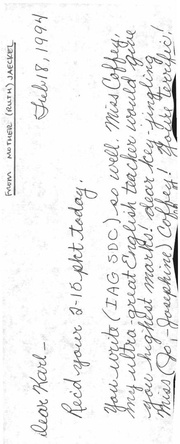 FROM MOTHER (RUTH) JAECKEL
Feb 18, 1994
Dear Karl –
Rec'd your 2-16 pkt today.
You write (IAG SDC) so well. Miss Coffey,
my ultra-great English teacher would give
you highest marks! Dear key-jingling
Miss (Jo; Josephine) Coffey! You're terrific!